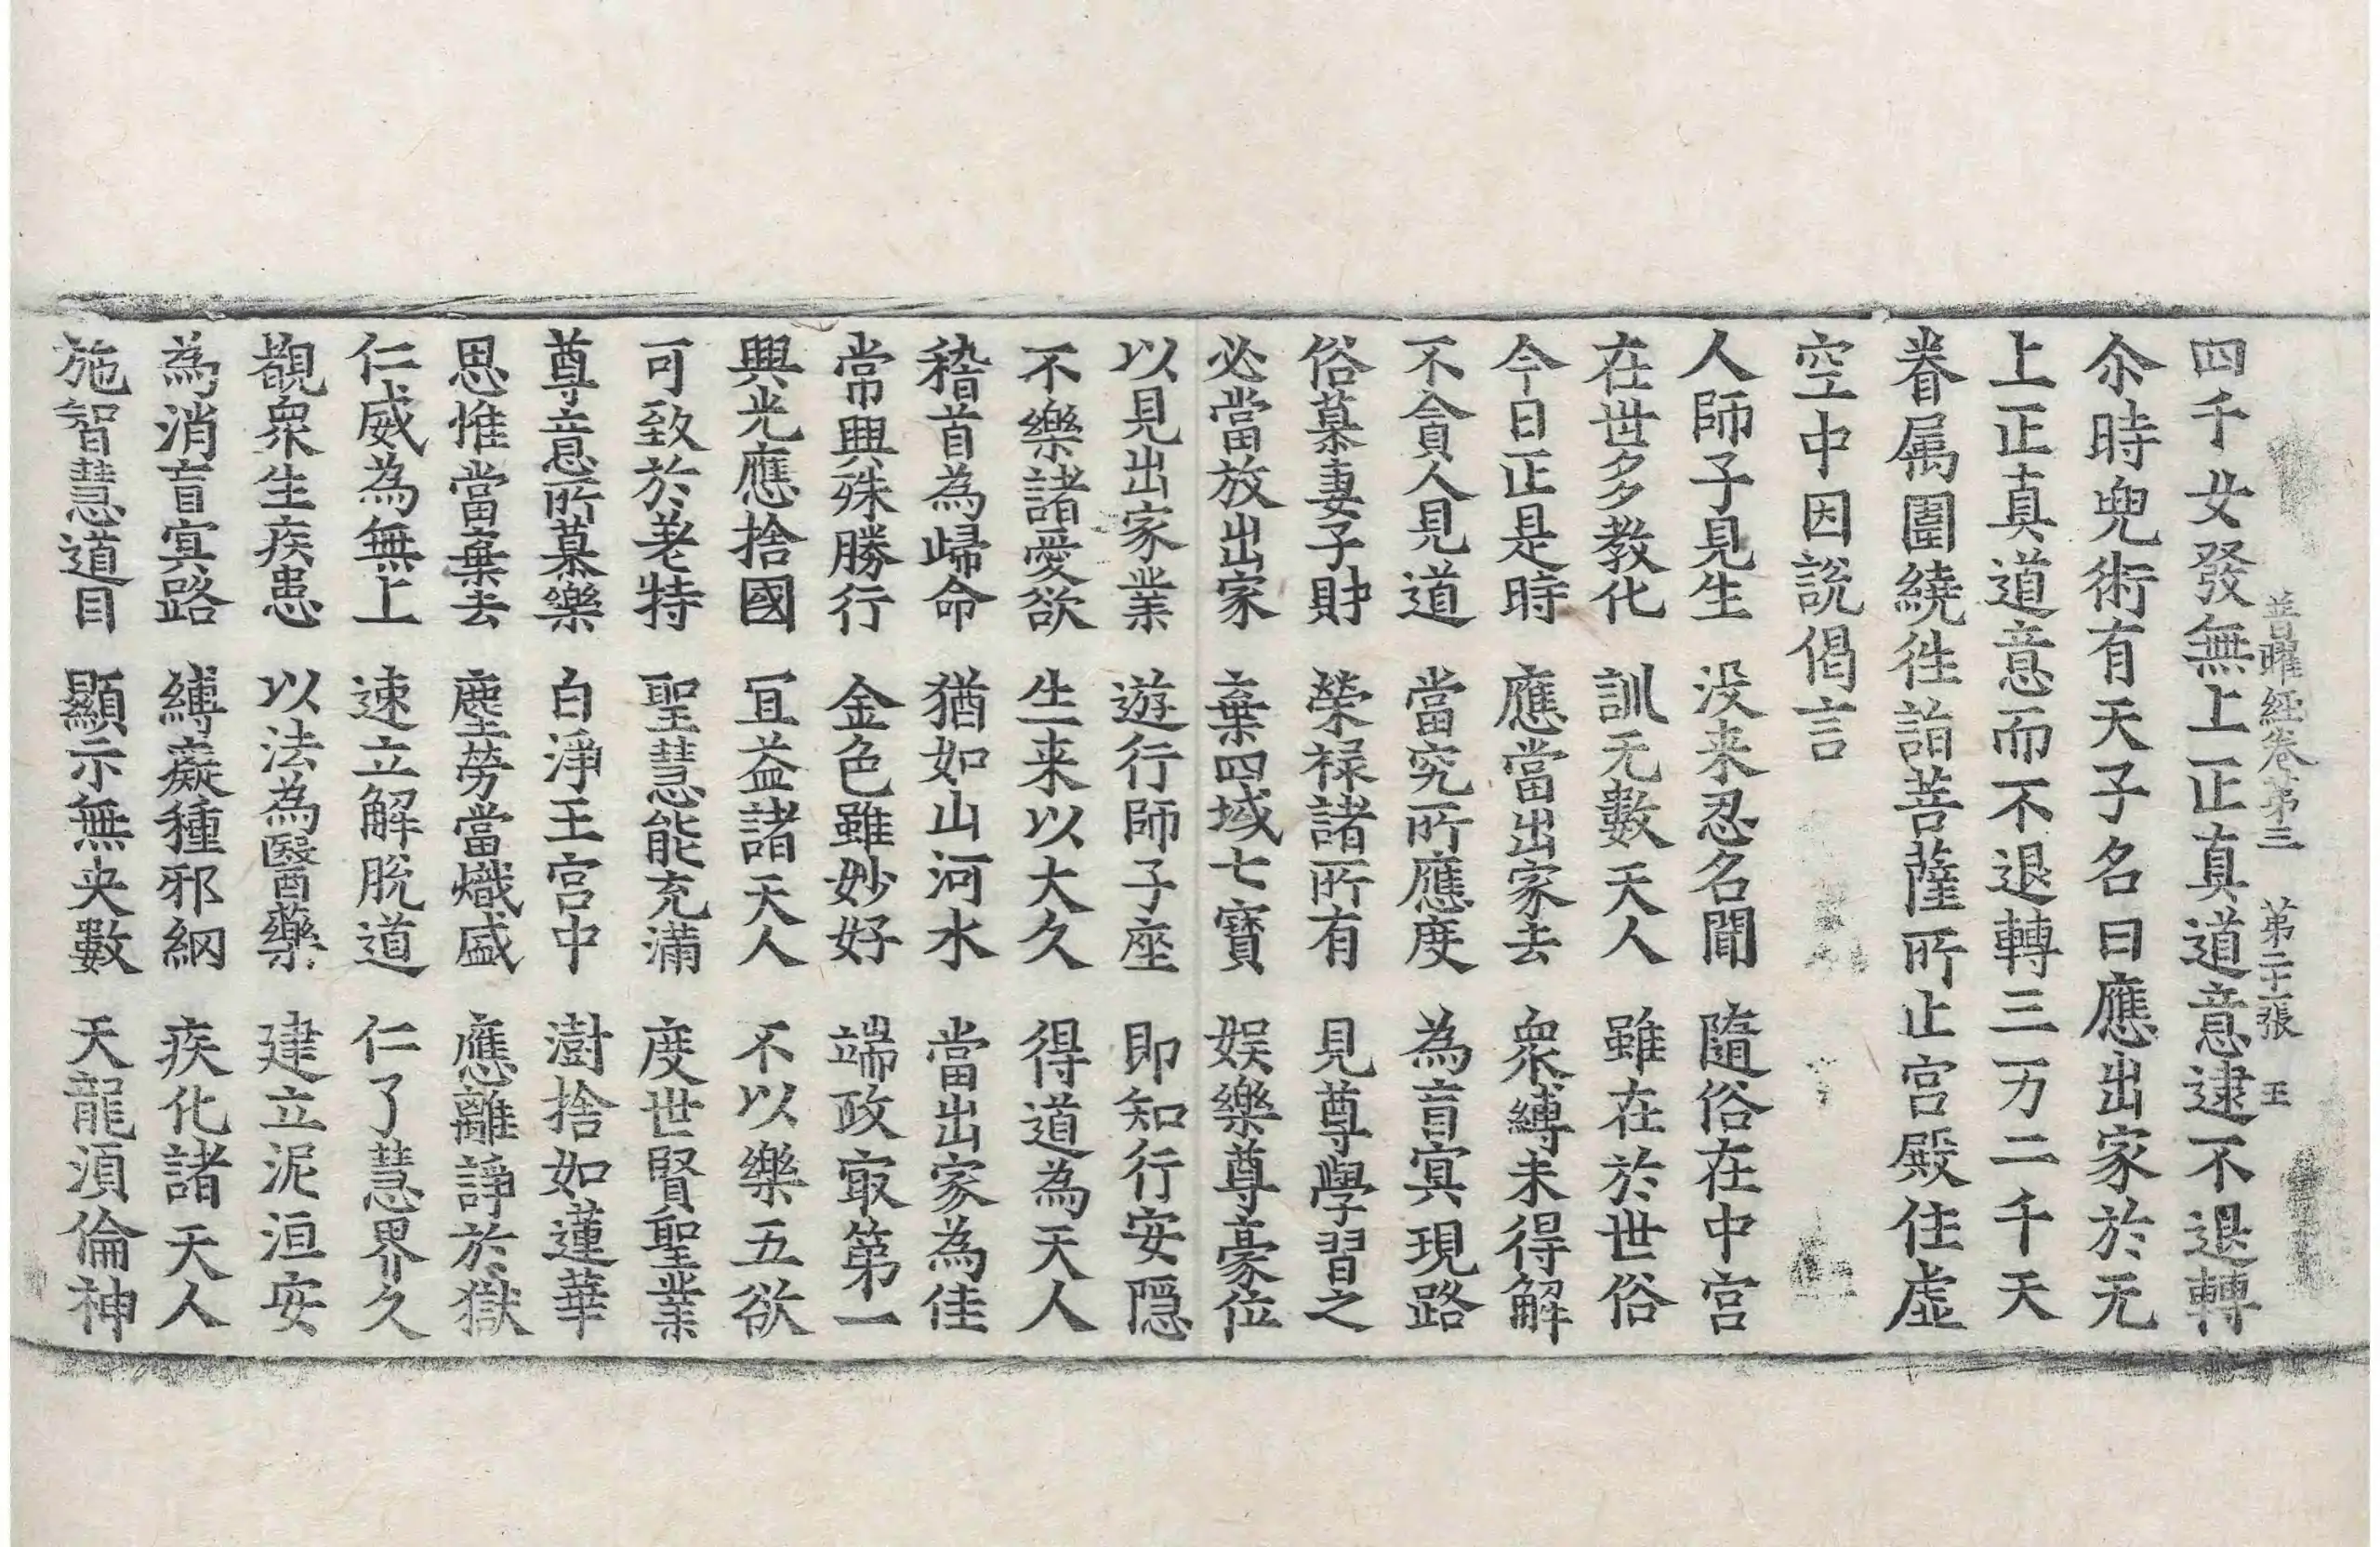 普曜經卷第三　第二十張　王
四千女發無上正真道意逮不退轉
尒時兜術有天子名曰應出家於无
上正真道意而不退轉三万二千天
眷属圍繞徃詣菩薩所止宫殿住虚
空中因說偈言
人師子見生　没来忍名聞　隨俗在中宫
在世多教化　訓无數天人　雖在於世俗
今日正是時　應當出家去　衆縛未得解
不貪人見道　當究所應度　為盲㝠現路
俗慕妻子財　榮禄諸所有　見尊學習之
必當放出家　棄四域七寶　娱樂尊豪位
以見出家業　遊行師子座　即知行安隠
不樂諸愛欲　生来以大久　得道為天人
稽首為歸命　猶如山河水　當出家為佳
常興殊勝行　金色雖妙好　端政㝡第一
興光應捨國　冝益諸天人　不以樂五欲
可致於老特　聖慧能充满　度世賢聖業
尊意所慕樂　白淨王宫中　澍捨如蓮華
思惟當棄去　塵勞當熾盛　應離諍於獄
仁威為無上　速立解脫道　仁了慧界久
觀衆生疾患　以法為醫藥　建立泥洹安
為消盲㝠路　縛癡種邪網　疾化諸天人
施智慧道目　顯示無央數　天龍須倫神